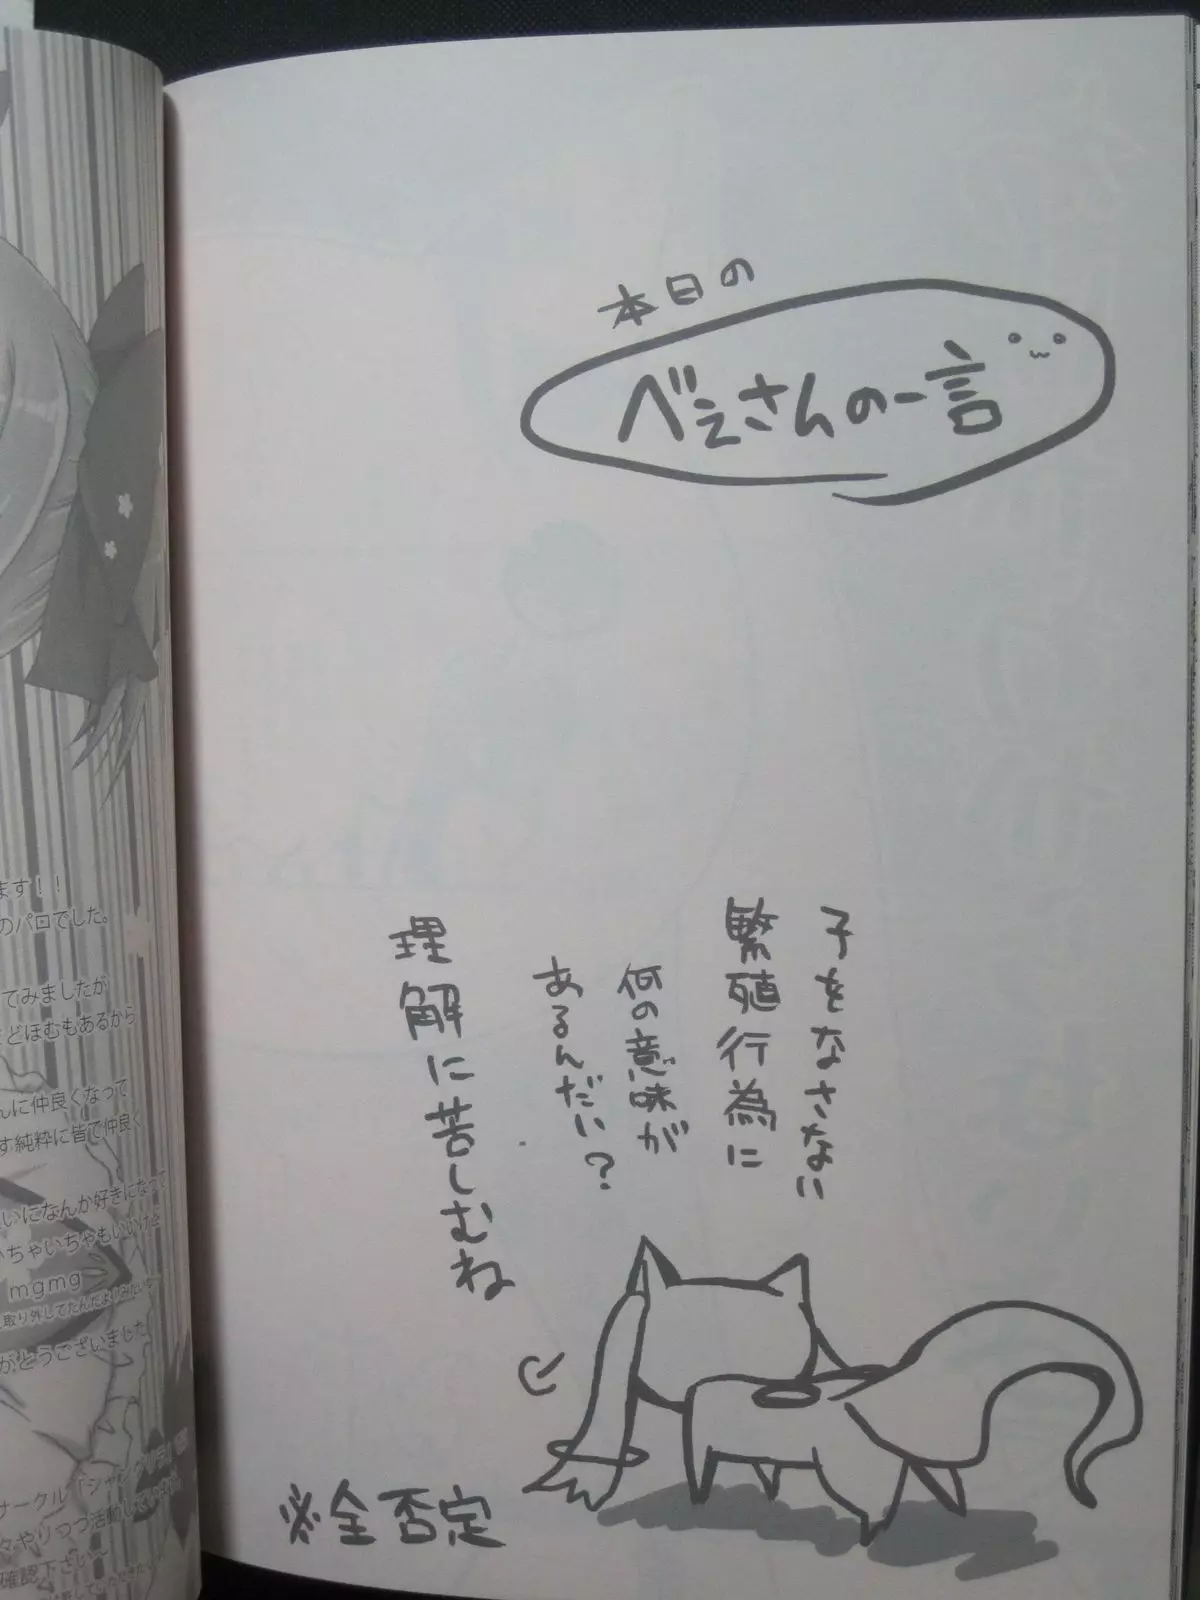 本日の
べぇさんの一言
子をなさない
繁殖行為に
何の意味が
あるんだい?
理解に苦しむね
※全否定
ます!!
のパロでした。
てみましたが
どほむもあるから
に仲良くなって
す純粋に皆で仲良く
いになんか好きになって
ちゃいちゃもいいけど
mgmg
取り外してたんだよ
がとうございました
サークル「シャングリラ
やりつつ活動してい
確認下さい~